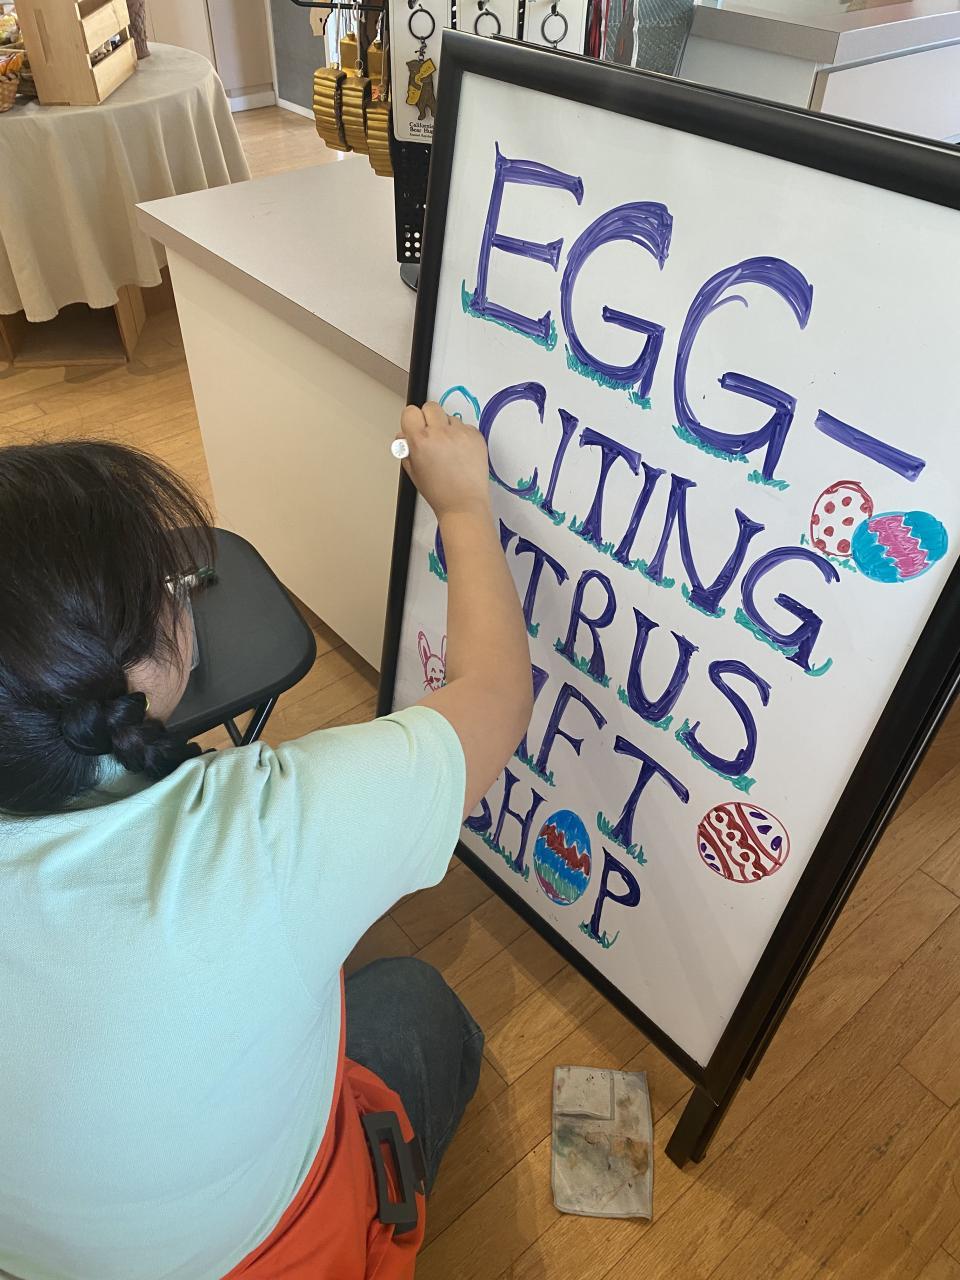 EGG-
CITING
CITRUS
GIFT
SHOP
California
Bear Hug